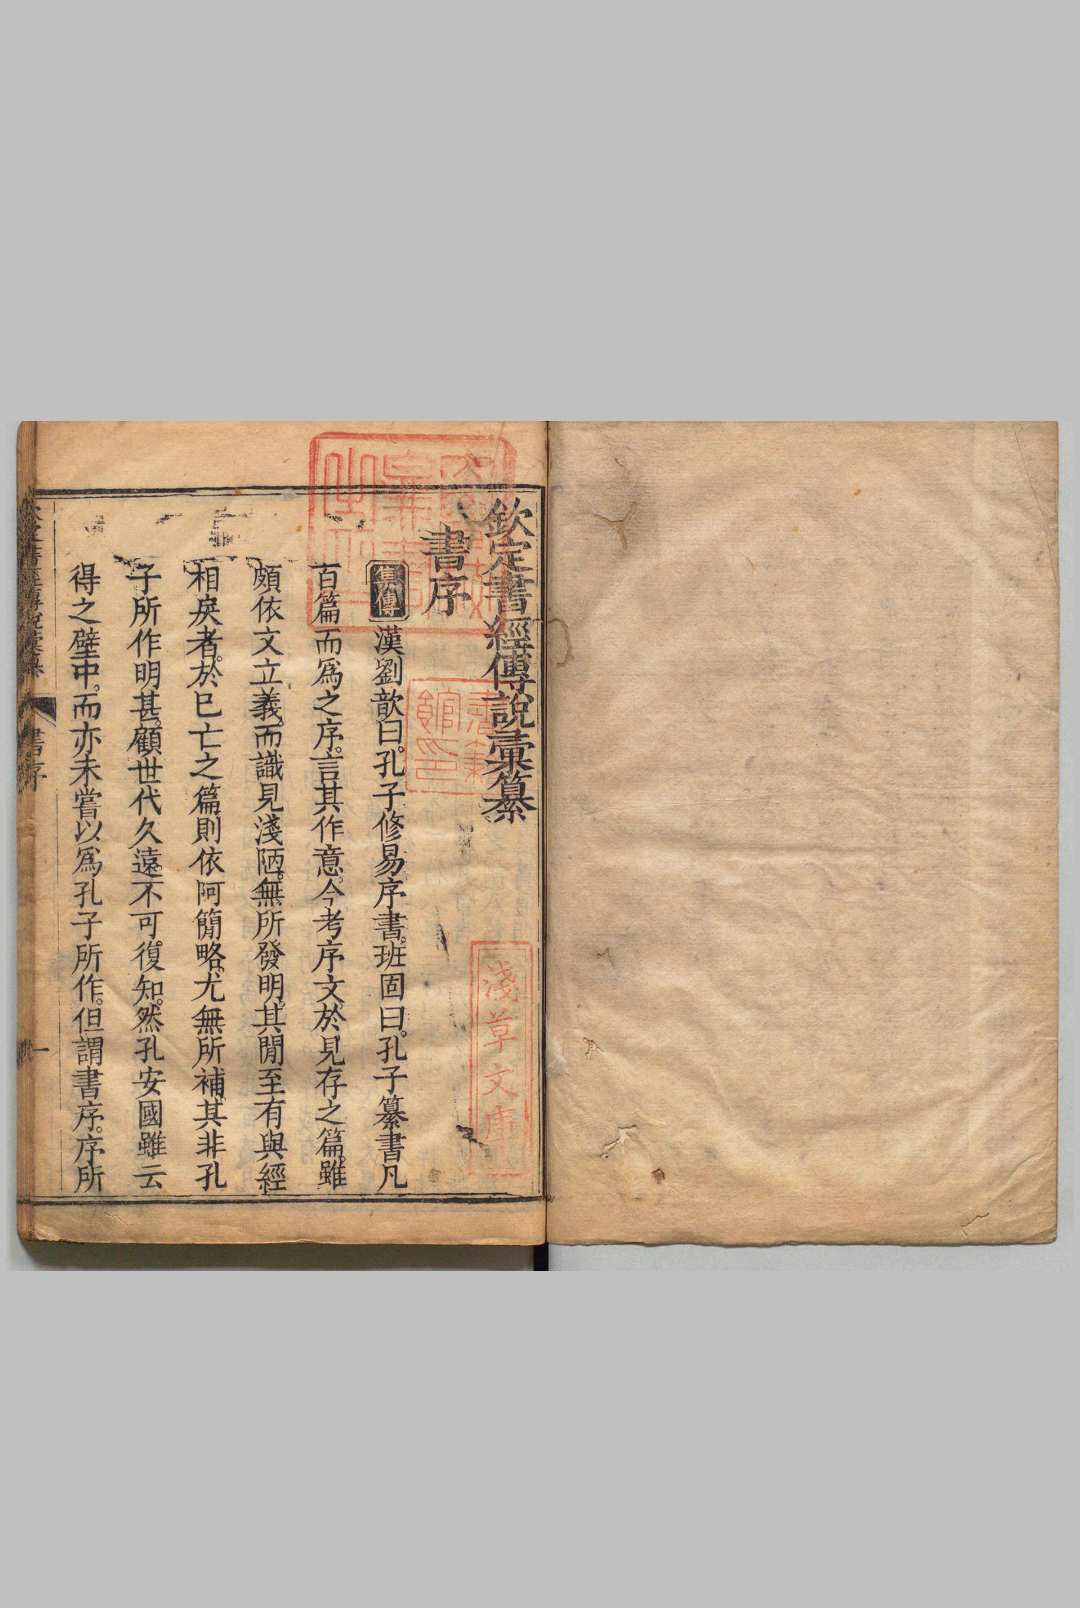 欽定書經傳說彙纂
書序
集傳 漢劉歆曰。孔子修易序書。班固曰。孔子纂書凡
百篇而爲之序。言其作意。今考序文。於見存之篇。雖
頗依文立義。而識見淺陋。無所發明。其閒至有與經
相戾者。於已亡之篇。則依阿簡略。尤無所補。其非孔
子所作明甚。顧世代久遠。不可復知。然孔安國雖云
得之壁中。而亦未嘗以爲孔子所作。但謂書序。序所
欽定書經傳說彙纂 書序 一
淺草文庫